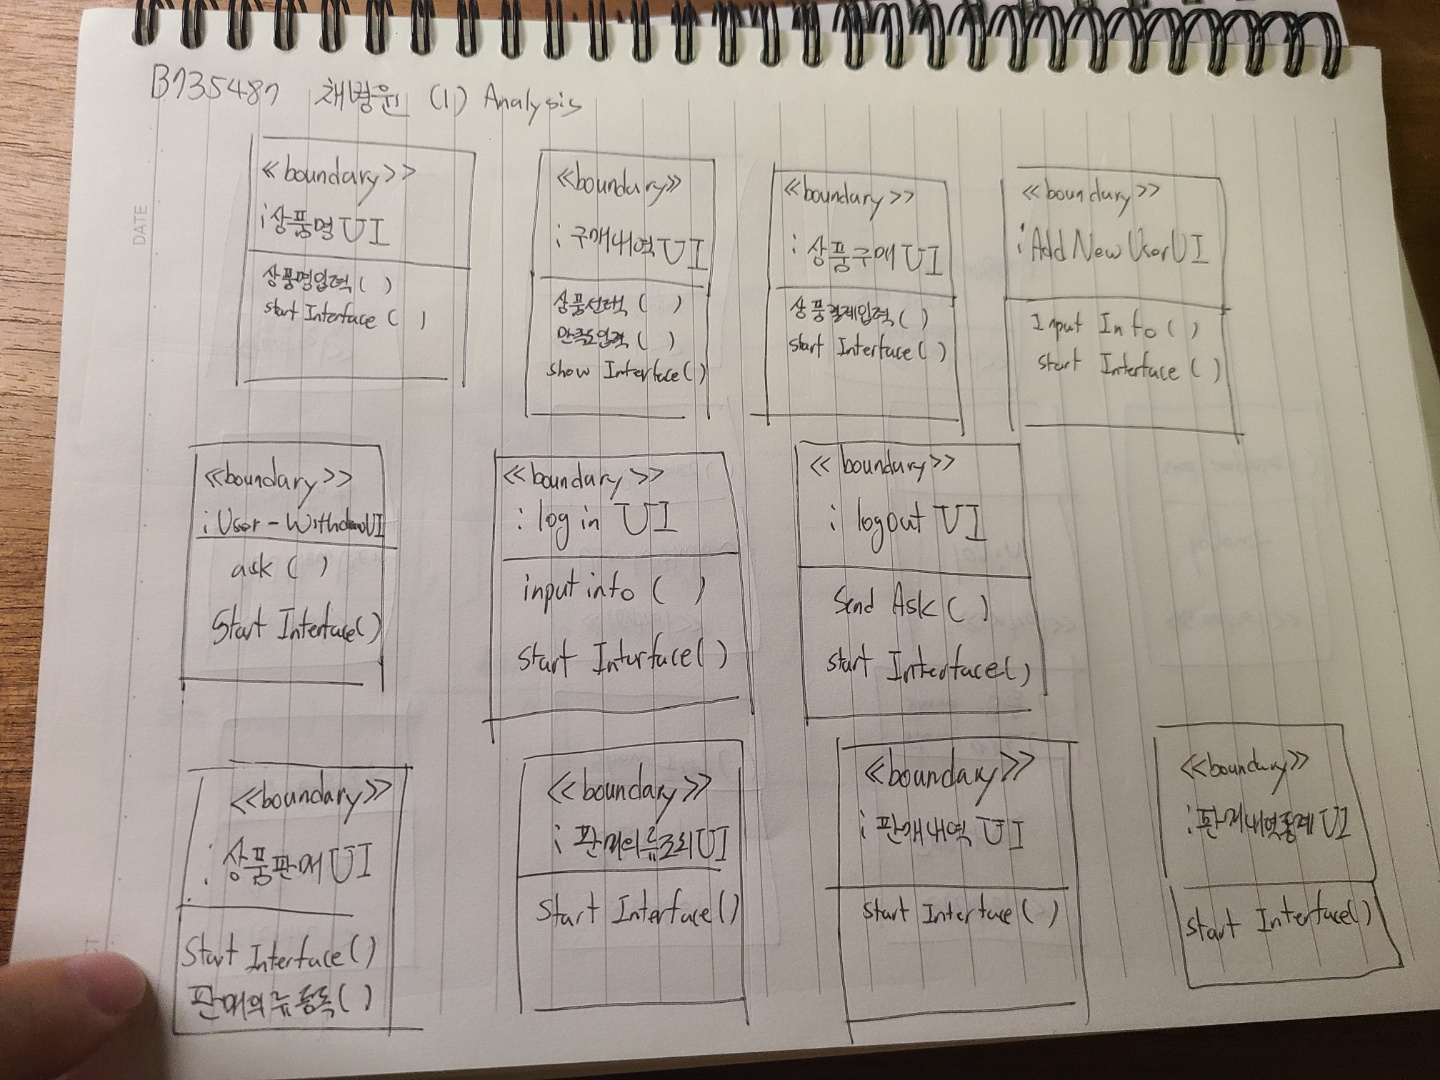 B735487 채병원 (1) Analysis
<<boundary>>
:상품명 UI
상품명입력( )
start Interface ( )
<<boundary>>
: 구매내역 UI
상품선택 ( )
만족도입력 ( )
show Interface( )
<<boundary>>
: 상품구매 UI
상품결제입력( )
start Interface( )
<<boundary>>
: Add New User UI
Input Info ( )
start Interface ( )
<<boundary>>
: User-Withdraw UI
ask ( )
Start Interface( )
<<boundary>>
: log in UI
input info ( )
start Interface( )
<<boundary>>
: logout UI
Send Ask ( )
start Interface( )
<<boundary>>
: 상품판매 UI
Start Interface( )
판매의류등록( )
<<boundary>>
: 판매의류조회 UI
Start Interface( )
<<boundary>>
: 판매내역 UI
Start Interface ( )
<<boundary>>
: 판매내역통계 UI
Start Interface( )
DATE